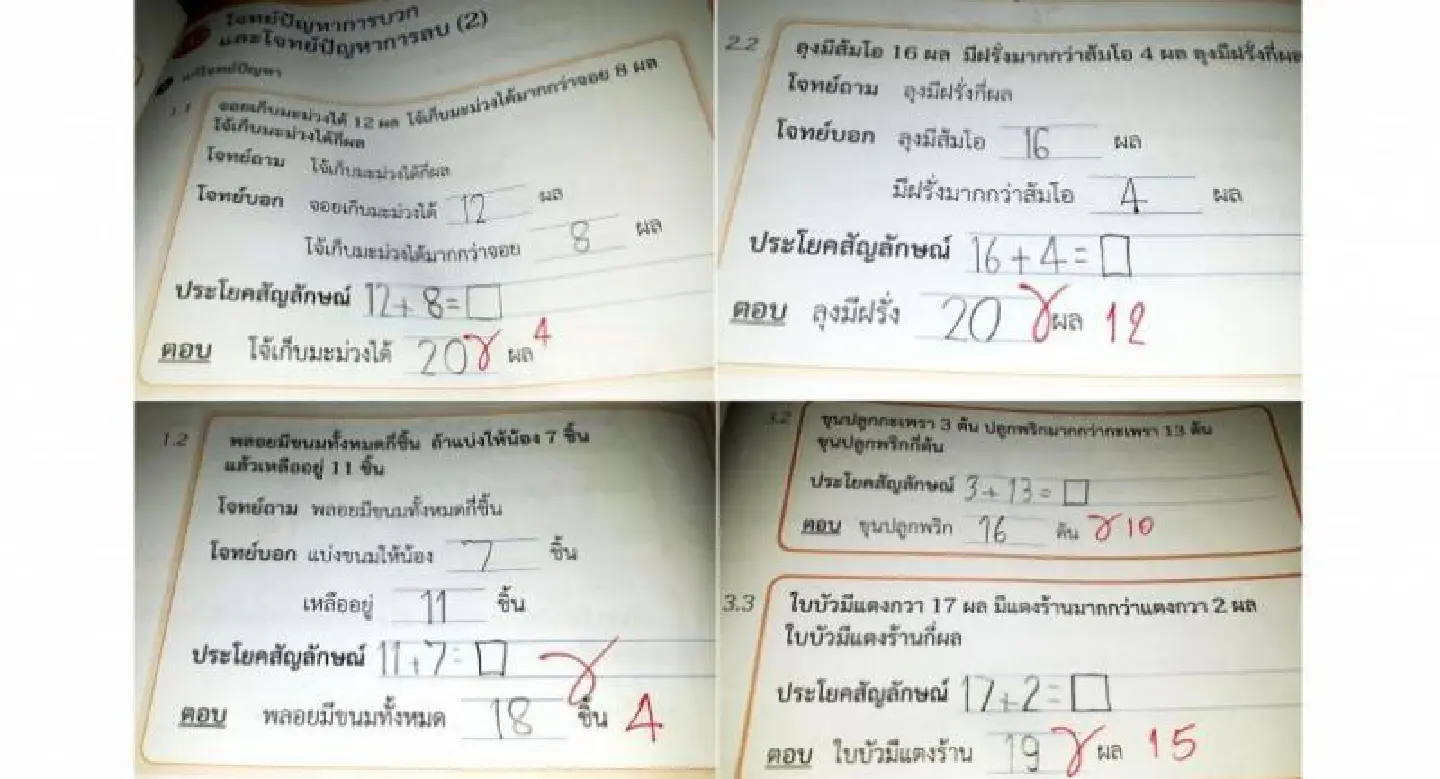 โจทย์ปัญหาการบวก
และโจทย์ปัญหาการลบ (2)
แก้โจทย์ปัญหา
1.1 จอยเก็บมะม่วงได้ 12 ผล โจ้เก็บมะม่วงได้มากกว่าจอย 8 ผล
โจ้เก็บมะม่วงได้กี่ผล
โจทย์ถาม โจ้เก็บมะม่วงได้กี่ผล
โจทย์บอก จอยเก็บมะม่วงได้ 12 ผล
โจ้เก็บมะม่วงได้มากกว่าจอย 8 ผล
ประโยคสัญลักษณ์ 12+8=□
ตอบ โจ้เก็บมะม่วงได้ 20 ผล 4
2.2 ลุงมีส้มโอ 16 ผล มีฝรั่งมากกว่าส้มโอ 4 ผล ลุงมีฝรั่งกี่ผล
โจทย์ถาม ลุงมีฝรั่งกี่ผล
โจทย์บอก ลุงมีส้มโอ 16 ผล
มีฝรั่งมากกว่าส้มโอ 4 ผล
ประโยคสัญลักษณ์ 16+4=□
ตอบ ลุงมีฝรั่ง 20 ผล 12
1.2 พลอยมีขนมทั้งหมดกี่ชิ้น ถ้าแบ่งให้น้อง 7 ชิ้น
แล้วเหลืออยู่ 11 ชิ้น
โจทย์ถาม พลอยมีขนมทั้งหมดกี่ชิ้น
โจทย์บอก แบ่งขนมให้น้อง 7 ชิ้น
เหลืออยู่ 11 ชิ้น
ประโยคสัญลักษณ์ 11+7=□
ตอบ พลอยมีขนมทั้งหมด 18 ชิ้น 4
3.2 ขุนปลูกกะเพรา 3 ต้น ปลูกพริกมากกว่ากะเพรา 13 ต้น
ขุนปลูกพริกกี่ต้น
ประโยคสัญลักษณ์ 3+13=□
ตอบ ขุนปลูกพริก 16 ต้น 10
3.3 ใบบัวมีแตงกวา 17 ผล มีแตงร้านมากกว่าแตงกวา 2 ผล
ใบบัวมีแตงร้านกี่ผล
ประโยคสัญลักษณ์ 17+2=□
ตอบ ใบบัวมีแตงร้าน 19 ผล 15